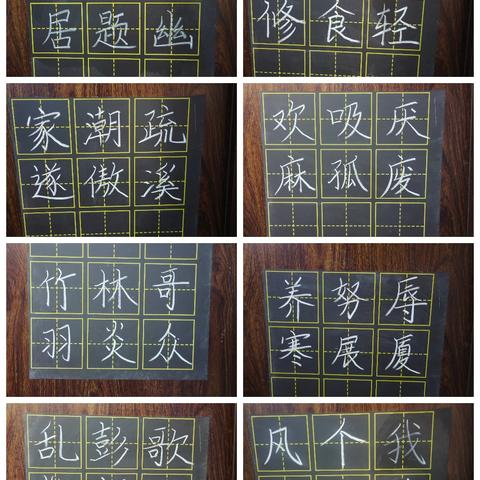 居题幽
修食轻
家潮疏
遂傲溪
欢吸厌
麻狐废
竹林哥
羽炎众
养努辱
寒展厦
乱彭歌
风个我